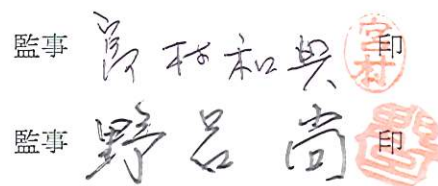 監事 宮村和興 宮村 印
監事 野呂尚 印